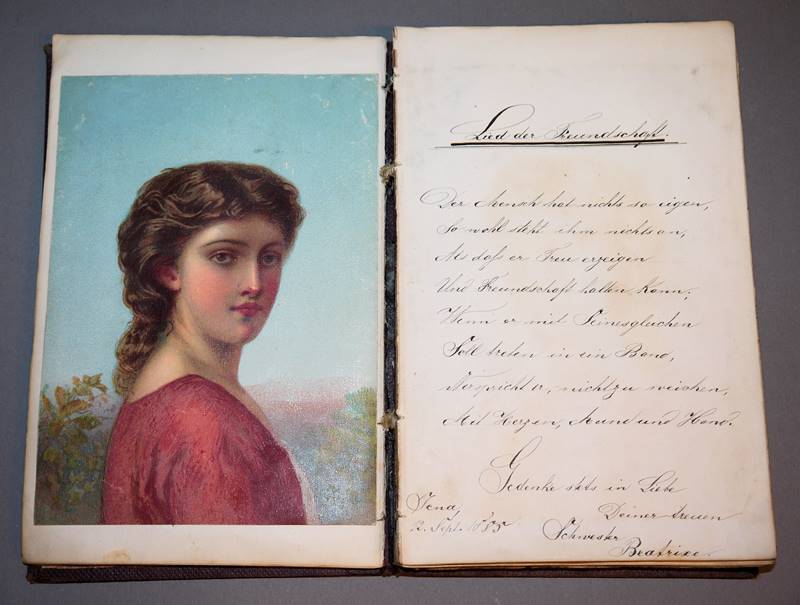 Lied der Freundschaft.
Der Mensch hat nichts so eigen,
So wohl steht ihm nichts an,
Als daß er Treu erzeigen
Und Freundschaft halten kann;
Wenn er mit Seinesgleichen
Soll treten in ein Band,
Verspricht er, nicht zu weichen,
Mit Herzen, Mund und Hand.
Gedenke stets in Liebe
Deiner treuen
Schwester
Beatrixe.
Jena,
12. Sept. 1885